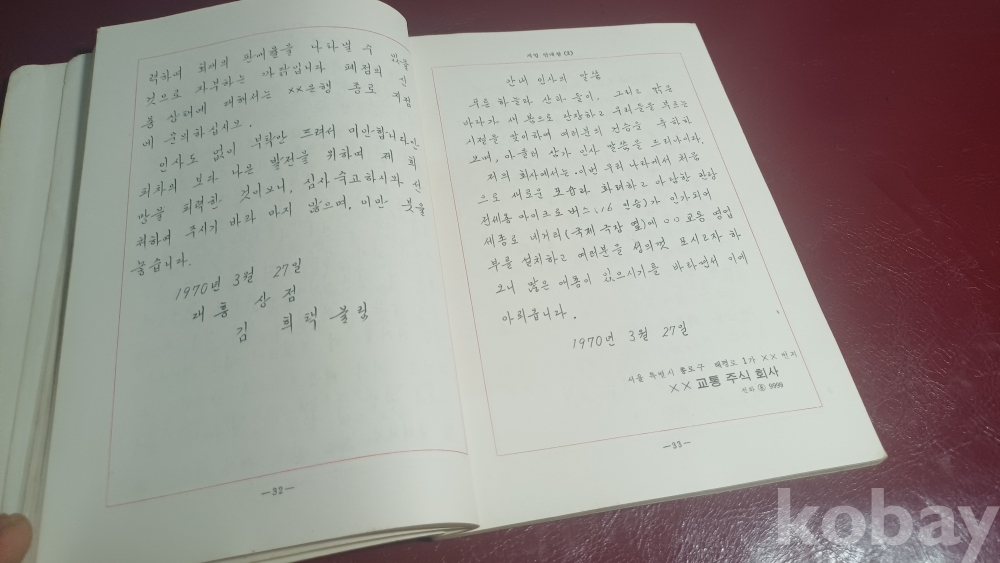 력하여 최대의 판매율을 나타낼 수 있을
것으로 자부하는 까닭입니다 폐점의 신
용 상태에 대해서는 ××은행 종로 지점
에 문의하십시오.
인사도 없이 부탁만 드려서 미안합니다만
피차의 보다 나은 발전을 위하여 제 희
망을 피력한 것이오니, 심사숙고하시와 선
처하여 주시기 바라 마지 않으며, 이만 붓을
놓습니다.
1970년 3월 27일
대흥 상점
김 희택 올림
—32—
안내 인사의 말씀
푸른 하늘과 산과 들이, 그리고 맑은
바다가 새 봄으로 단장하고 우리들을 부르는
시절을 맞이하여 여러분의 건승을 축하하
오며, 아울러 삼가 인사 말씀을 드리나이다.
저의 회사에서는 이번 우리 나라에서 처음
으로 새로운 모습과 화려하고 아담한 관광
전세용 마이크로 버스 (16 인승)가 인가되어
세종로 네거리 (국제 극장 옆)에 ○○교통 영업
부를 설치하고 여러분을 성의껏 모시고자 하
오니 많은 애용이 있으시기를 바라면서 이에
아뢰옵니다.
1970년 3월 27일
서울 특별시 종로구 태평로 1가 ×× 번지
×× 교통 주식 회사
전화 9999
—33—
kobay